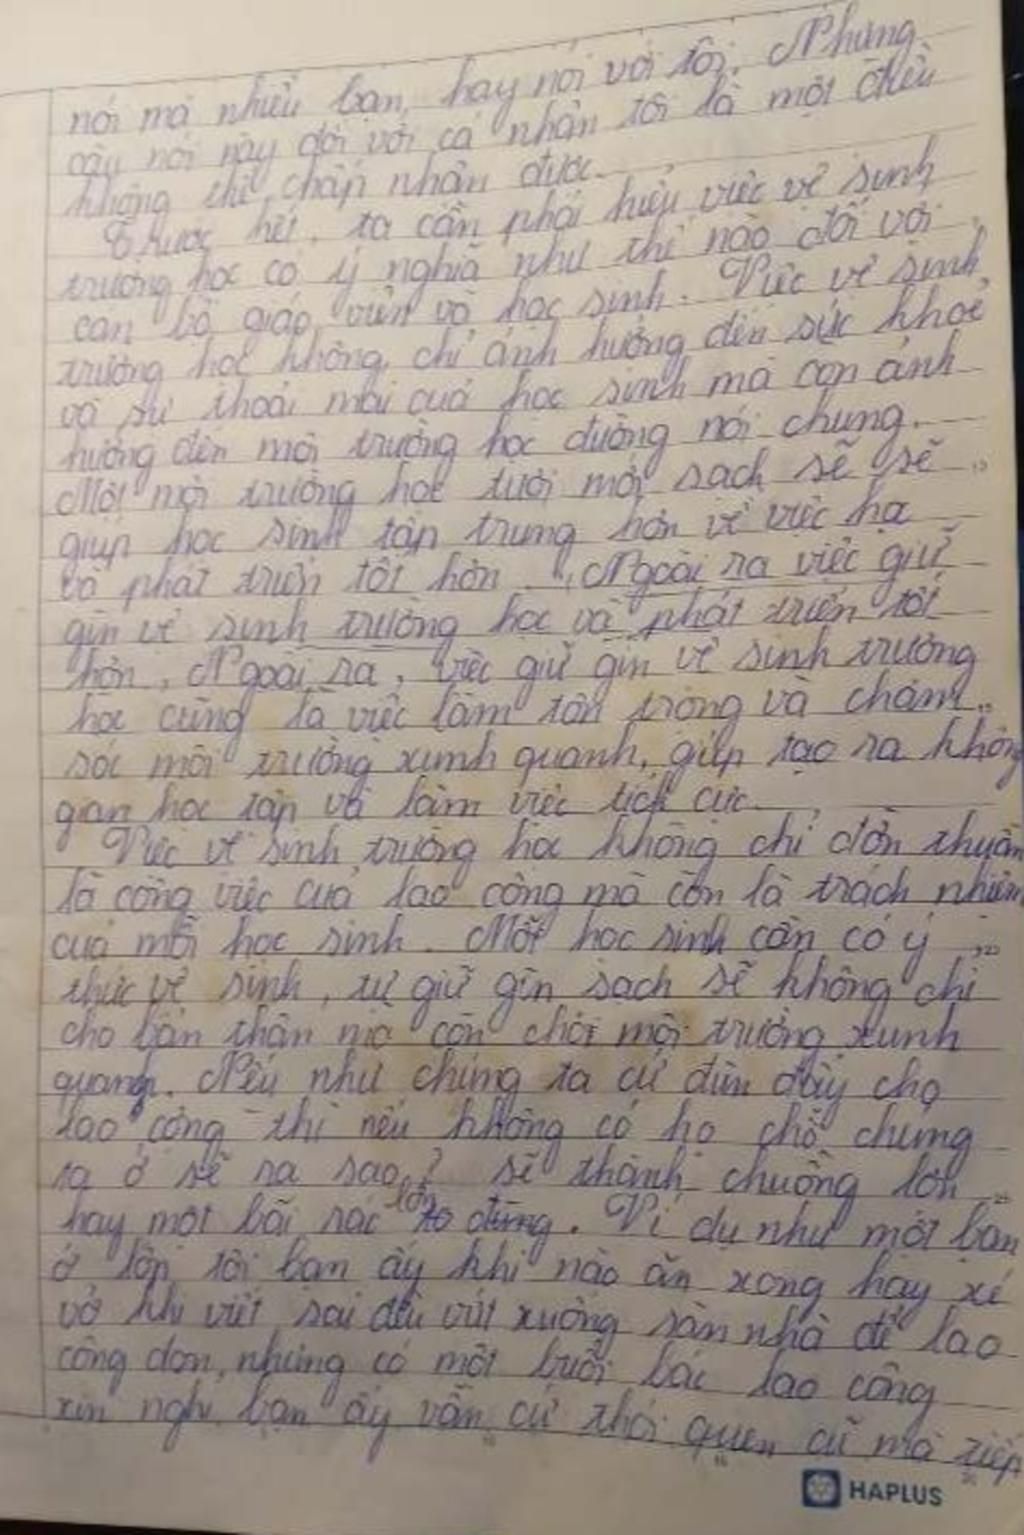 nói mà nhiều bạn hay nói với tôi. Nhưng
câu nói này đối với cá nhân tôi là một điều
không thể chấp nhận được.
Trước hết, ta cần phải hiểu việc vệ sinh
trường học có ý nghĩa như thế nào đối với
cán bộ giáo viên và học sinh. Việc vệ sinh
trường học không chỉ ảnh hưởng đến sức khoẻ
và sự thoải mái của học sinh mà còn ảnh
hưởng đến môi trường học đường nói chung.
Một môi trường học tươi mới, sạch sẽ sẽ
giúp học sinh tập trung hơn về việc học
và phát triển tốt hơn. Ngoài ra việc giữ
gìn vệ sinh trường học và phát triển tốt
hơn. Ngoài ra, việc giữ gìn vệ sinh trường
học cũng là việc làm tôn trọng và chăm
sóc môi trường xunh quanh, giúp tạo ra không
gian học tập và làm việc tích cực.
Việc vệ sinh trường học không chỉ đơn thuần
là công việc của lao công mà còn là trách nhiệm
của mỗi học sinh. Mỗi học sinh cần có ý
thức vệ sinh, tự giữ gìn sạch sẽ không chỉ
cho bản thân mà còn cho môi trường xunh
quanh. Nếu như chúng ta cứ đùn đẩy cho
lao công thì nếu không có họ chỗ chúng
ta ở sẽ ra sao? sẽ thành chuồng lớn
hay một bãi rác lớn to đùng. Ví dụ như một bạn
ở lớp tôi bạn ấy khi nào ăn xong hay xé
vở khi viết sai đều vứt xuống sàn nhà để lao
công dọn, nhưng có một buổi bác lao công
xin nghỉ bạn ấy vẫn cứ thói quen cũ mà tiếp
HAPLUS